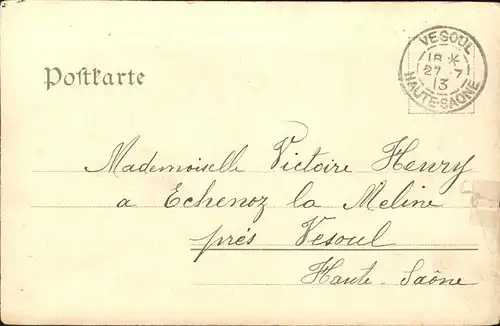 VESOUL
18 *
27 7
13
HAUTE-SAÔNE
Postkarte
Mademoiselle Victoire Henry
a Echenoz la Meline
prés Vesoul
Haute-Saône